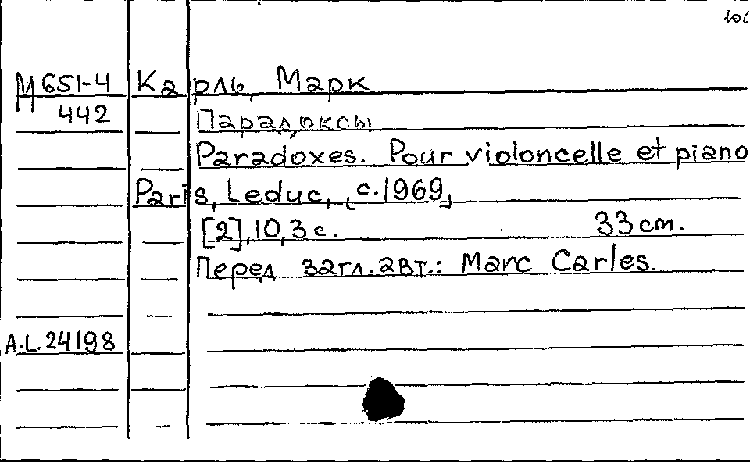 М 651-4 Карль, Марк
442 Парадоксы
Paradoxes. Pour violoncelle et piano
Paris, Leduc, [c.1969]
[2], 10, 3 с. 33 cm.
Перед загл. авт.: Marc Carles.
A.L. 24198